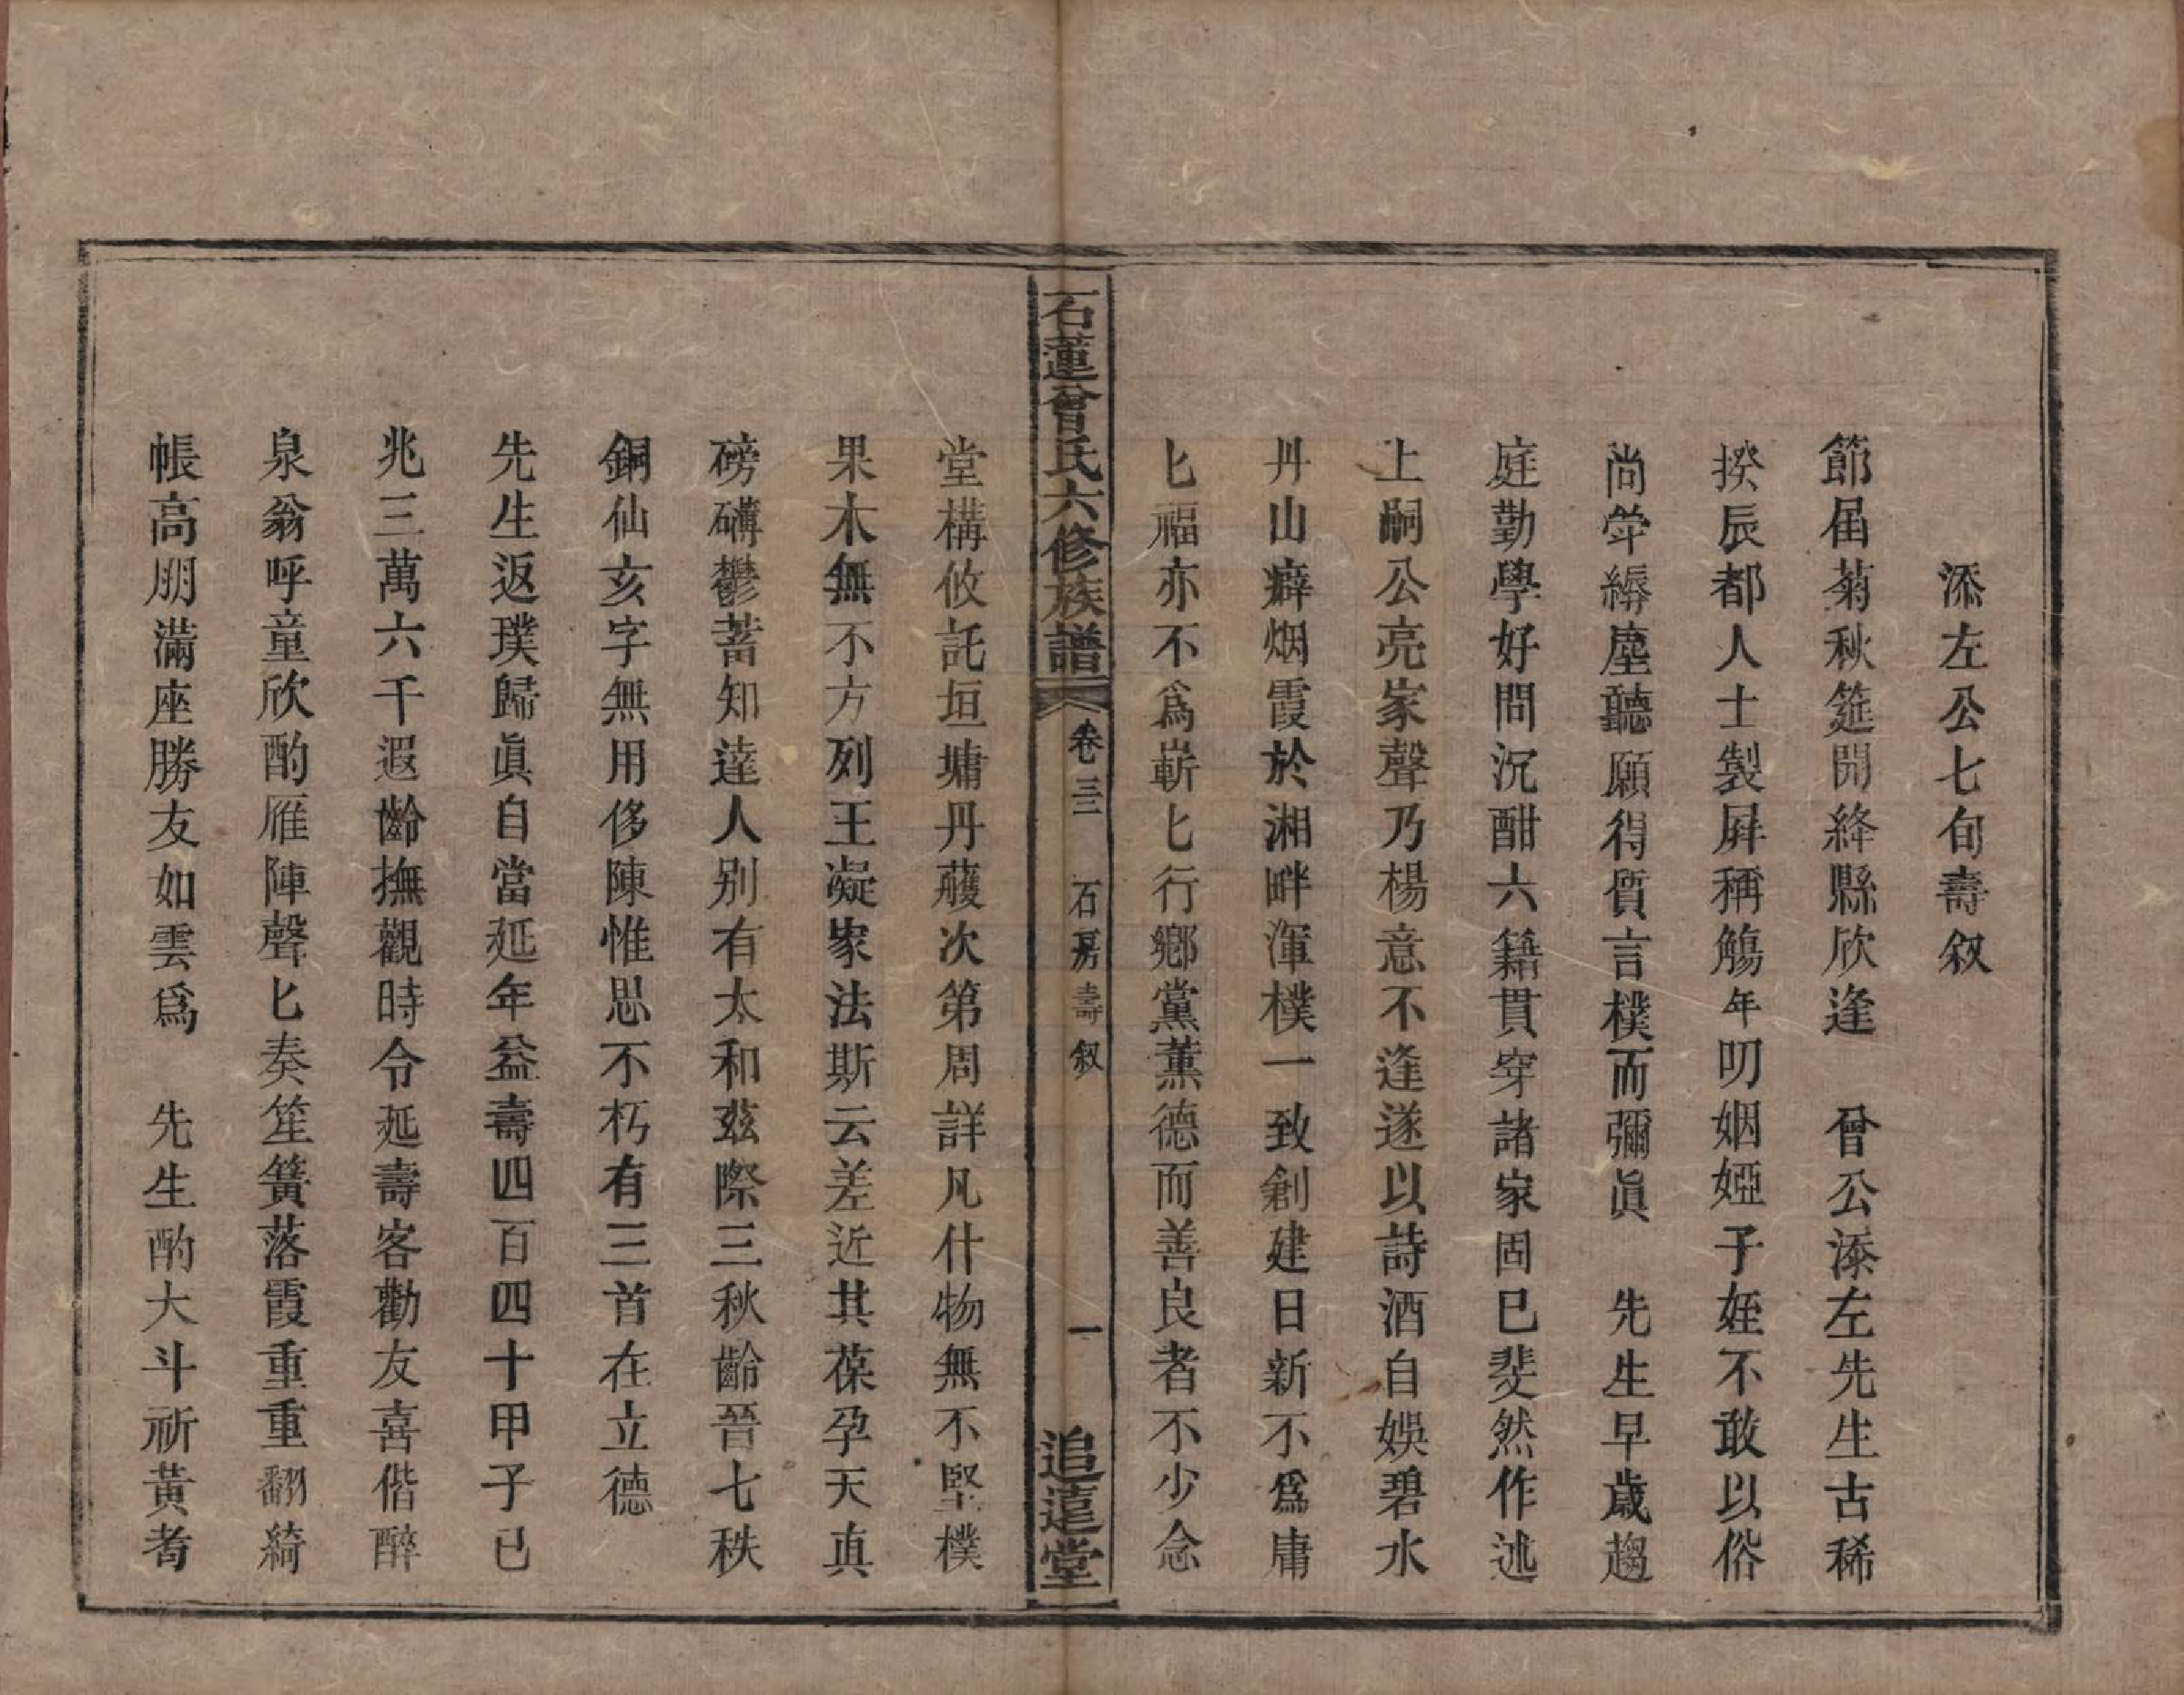 添左公七旬壽叙
節届菊秋筵開絳縣欣逢　曾公添左先生古稀
揆辰都人士製屏稱觴年叨姻婭子姪不敢以俗
尚筓縟塵聽願得質言樸而彌眞　先生早歲趨
庭勤學好問沉酣六籍貫穿諸家固已斐然作述
上嗣公亮家聲乃楊意不逢遂以詩酒自娛碧水
丹山癖烟霞於湘畔渾樸一致創建日新不爲庸
匕福亦不爲嶄匕行鄉黨薰德而善良者不少念
石蓮曾氏六修族譜　卷三三　石房壽叙　一　追遠堂
堂構攸託垣墉丹雘次第周詳凡什物無不堅樸
果木無不方列王凝家法斯云差近其葆孕天真
磅礴鬱蓄知達人別有太和茲際三秋齡晉七秩
銅仙亥字無用侈陳惟思不朽有三首在立德
先生返璞歸眞自當延年益壽四百四十甲子已
兆三萬六千遐齡撫觀時令延壽客勸友喜偕醉
泉翁呼童欣酌雁陣聲匕奏笙簧落霞重重翻綺
帳高朋滿座勝友如雲爲　先生酌大斗祈黃耇